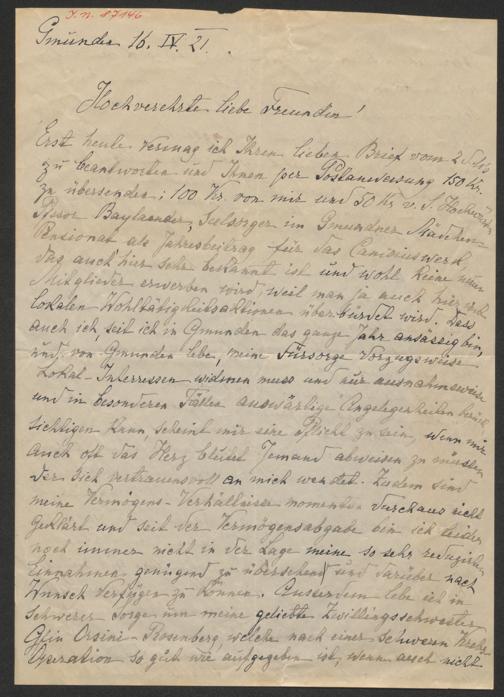 J. n. 87146
Gmunden 16. IV. 21.
Hochverehrte liebe Freundin!
Erst heute vermag ich Ihren lieben Brief vom 2. d. Mts.
zu beantworten und Ihnen per Postanweisung 150 Kr.
zu übersenden; 100 Kr. von mir und 50 Kr. v. S. Hochwürden
Baylaender, Seelsorger im Gmundner Mädchen-
Pensionat als Jahresbeitrag für das Canisiuswerk
das auch hier sehr bekannt ist und wohl keine neuen
Mitglieder erwerben wird, weil man ja auch hier mit
lokalen Wohltätigkeitsaktionen überbürdet wird. Dass
auch ich, seit ich in Gmunden das ganze Jahr ansässig bin,
und von Gmunden lebe, meine Fürsorge vorzugsweise
Lokal-Interressen widmen muss und nur ausnahmsweise
und in besonderen Fällen auswärtige Angelegenheiten berück-
sichtigen kann, scheint mir eine Pflicht zu sein, wenn mir
auch oft das Herz blutet Jemand abweisen zu müssen
der sich vertrauensvoll an mich wendet. Zudem sind
meine Vermögens-Verhältnisse momentan durchaus nicht
geklärt und seit der Vermögensabgabe bin ich leider
noch immer nicht in der Lage meine so sehr reduzirten
Einnahmen genügend zu übersehen und darüber nach
Wunsch verfügen zu können. Ausserdem lebe ich in
schwerer Sorge um meine geliebte Zwillingsschwester
Gfin Orsini-Rosenberg, welche nach einer schweren
Operation so gut wie aufgegeben ist, wenn auch nicht